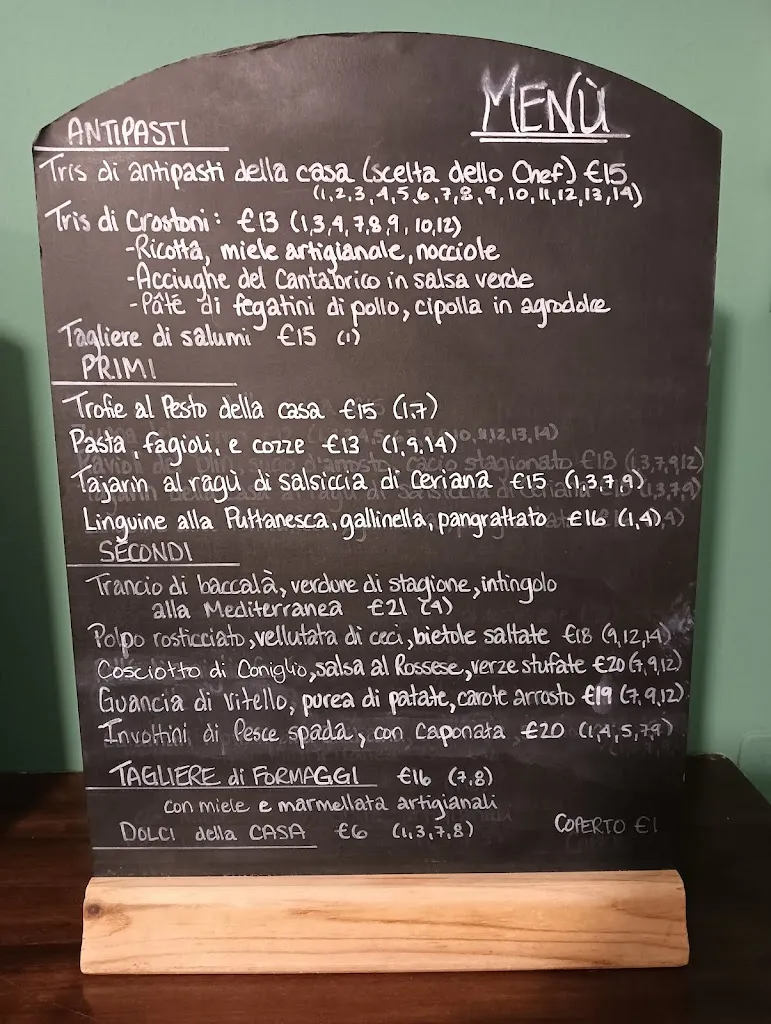 MENÙ
ANTIPASTI
Tris di antipasti della casa (scelta dello Chef) €15
(1,2,3,4,5,6,7,8,9,10,11,12,13,14)
Tris di Crostoni: €13 (1,3,4,7,8,9,10,12)
-Ricotta, miele artigianale, nocciole
-Acciughe del Cantabrico in salsa verde
-Pâté di fegatini di pollo, cipolla in agrodolce
Tagliere di salumi €15 (1)
PRIMI
Trofie al Pesto della casa €15 (1,7)
Pasta, fagioli, e cozze €13 (1,9,14)
Tajarin al ragù di salsiccia di Ceriana €15 (1,3,7,9)
Linguine alla Puttanesca, gallinella, pangrattato €16 (1,4)
SECONDI
Trancio di baccalà, verdure di stagione, intingolo
alla Mediterranea €21 (4)
Polpo rosticciato, vellutata di ceci, bietole saltate €18 (9,12,14)
Cosciotto di Coniglio, salsa al Rossese, verze stufate €20 (7,9,12)
Guancia di Vitello, purea di patate, carote arrosto €19 (7,9,12)
Involtini di Pesce spada, con Caponata €20 (1,4,5,7,9)
TAGLIERE di FORMAGGI €16 (7,8)
con miele e marmellata artigianali
DOLCI della CASA €6 (1,3,7,8)
COPERTO €1